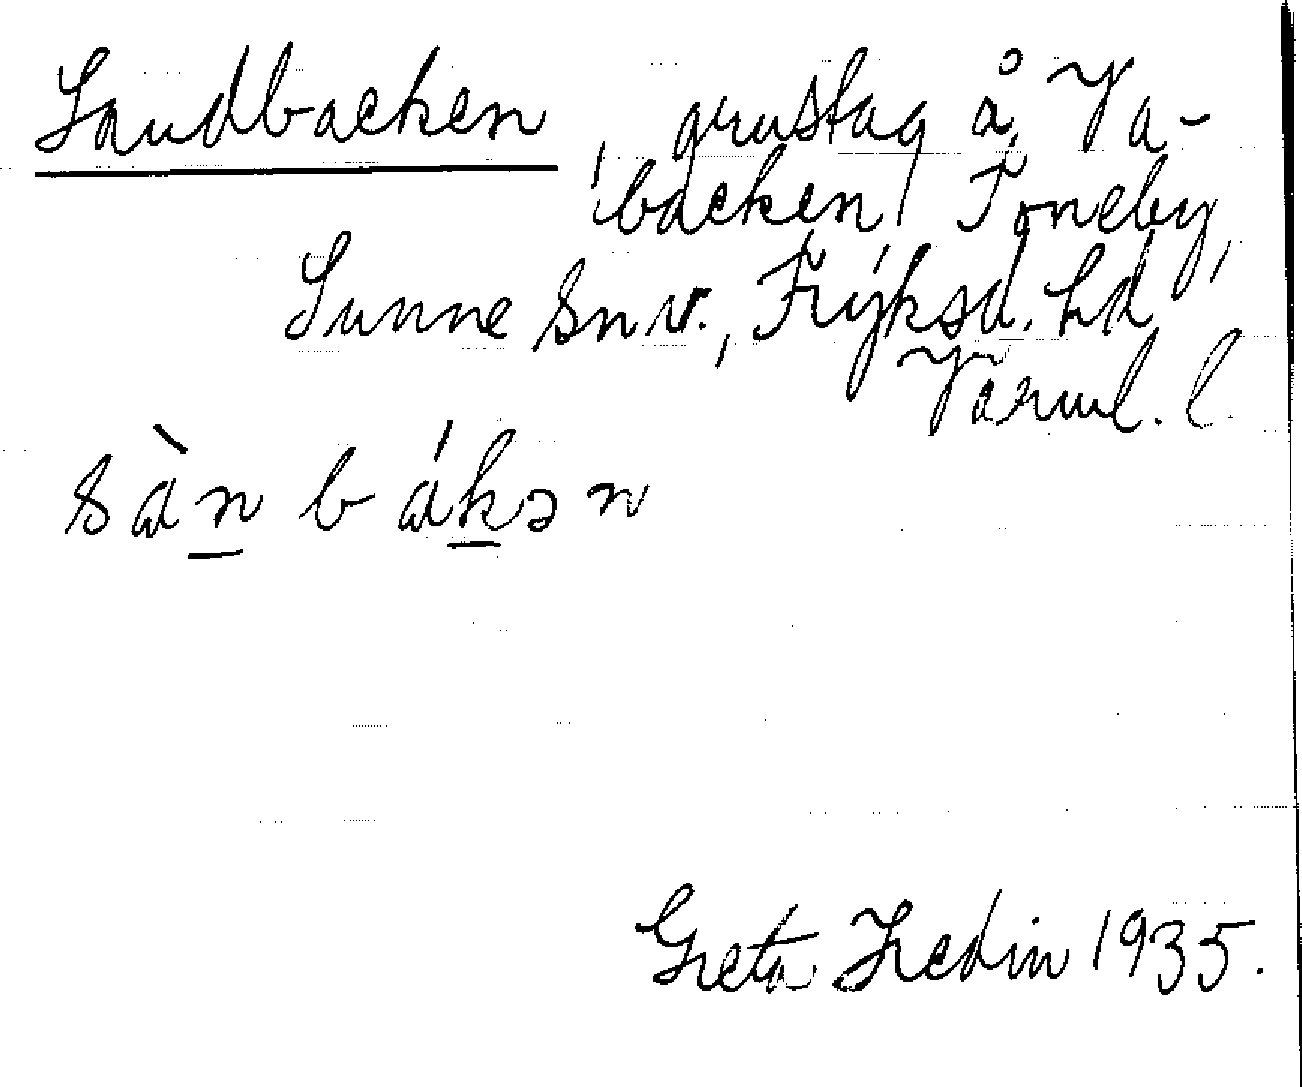 Sandbacken, grustag å Va-
backen, Toneby,
Sunne snv., Fryksd. hd
Värml. l.
sànbákən
Greta Hedin 1935.